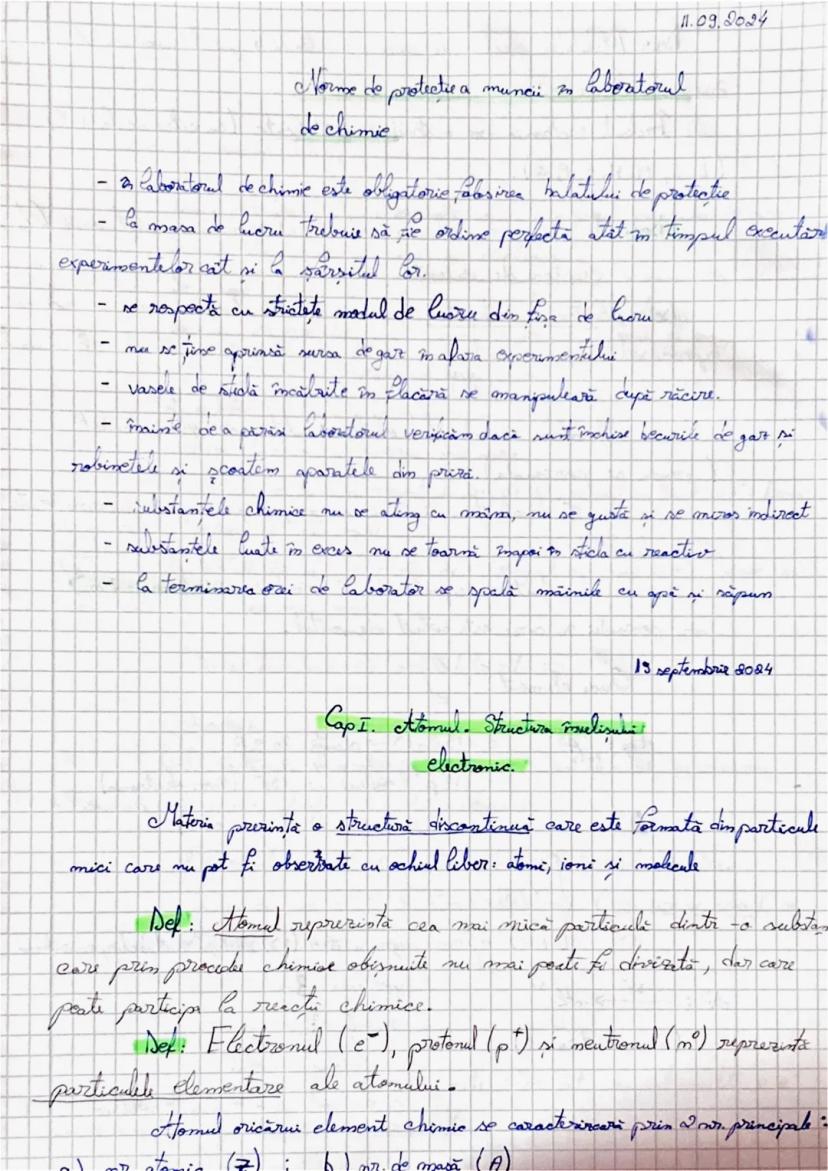 11.09.2024
Norme de protecția muncii în laboratorul
de chimie
- în laboratorul de chimie este obligatorie folosirea halatului de protecție
- la masa de lucru trebuie să fie ordine perfectă atât în timpul executăr
experimentelor cât și la sfârșitul lor.
- se respectă cu strictețe modul de lucru din fișa de lucru
- nu se ține aprinsă sursa de gaz în afara experimentului
- vasele de sticlă încălzite în flacără se manipulează după răcire.
- înainte de a părăsi laboratorul verificăm dacă sunt închise becurile de gaz și
robinetele și scoatem aparatele din priză.
- substanțele chimice nu se ating cu mâna, nu se gustă și se miros indirect
- substanțele luate în exces nu se toarnă înapoi în sticla cu reactiv
- la terminarea orei de laborator se spală mâinile cu apă și săpun
19 septembrie 2024
Cap I. Atomul. Structura învelișului
electronic.
Materia prezintă o structură discontinuă care este formată din particule
mici care nu pot fi observate cu ochiul liber: atomi, ioni și molecule
Def: Atomul reprezintă cea mai mică particulă dintr-o substan
care prin procedee chimice obișnuite nu mai poate fi divizată, dar care
poate participa la reacții chimice.
Def: Electronul (e⁻), protonul (p⁺) și neutronul (n⁰) reprezintă
particulele elementare ale atomului.
Atomul oricărui element chimic se caracterizează prin 2 nr. principale:
a) nr. atomic (Z) ; b) nr. de masă (A)